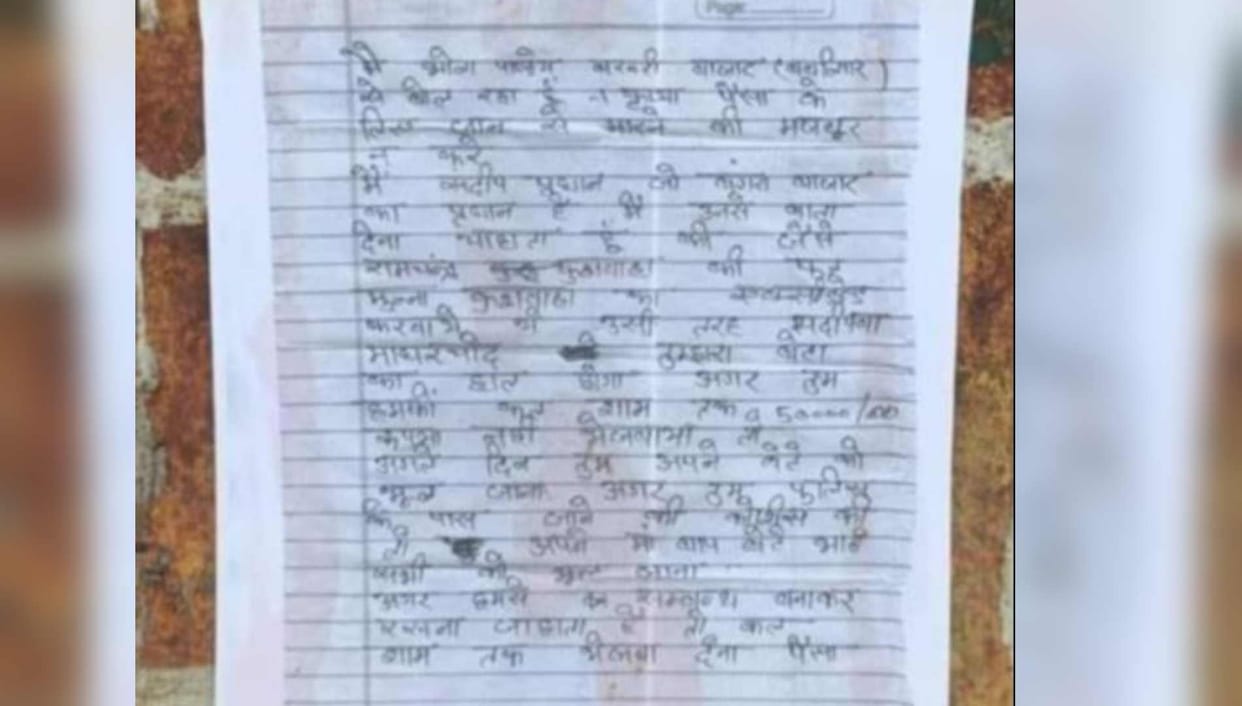 Page
मै भोला पाण्डेय बाजार
से बोल रहा हूं । कृपया पैसा के
लिए जान से मारने को मजबूर
न करे
मै प्रधान जो बाजार
का प्रधान है मै उनसे बाता
देना चाहाता हूं की जैसे
रामचंद्र कुशवाहा की
मुन्ना कुशवाहा का
करवाये थे उसी तरह
तुम्हारा बेटा
का हाल होगा अगर तुम
हमको कल शाम तक 50000/00
रूपया नही भेजवाया तो
अगले दिन तुम अपने बेटे को
भूल जाना अगर तुम पुलिस
के पास जाने की कोशीस की
तो अपने मां बाप बेटे भाई
सभी को भूल जाना
अगर हमसे बनाकर
रखना चाहाता है तो कल
शाम तक भेजवा देना पैसा